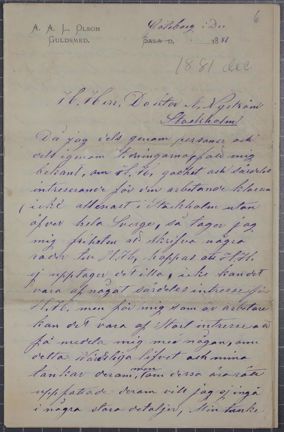 A. A. L. Olson
Guldsmed.
Göteborg i Dec
Sala d. 18 81
6
1881 dec
H. Herr. Doctor A. Nyström
Stockholm!
Då jag dels genom personer och
dels igenom tidningarna fått mig
bekant, om H. H. godhet och särdeles
intresserande för den arbetande klassen
icke allenast i Stockholm utan
öfver hela Sverge, så tager jag
mig friheten att skrifva några
rader till H.H., hoppas att H.H.
ej upptager det illa, icke kan det
vara af något särdeles intresse för
H.H. men för mig som är arbetare
kan det vara af stort intresse att
få meddela mig med någon, om
detta värdsliga lifvet och mina
tankar deröm, men om dessa äro rätt
uppfattade derom vill jag ej ingå
i några stora detaljer, Min tanke